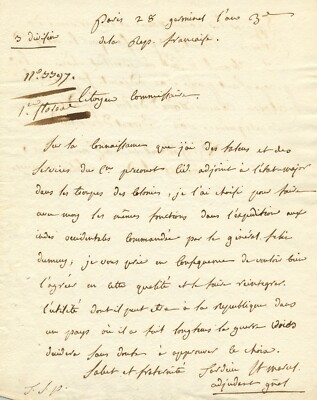 Paris 28 germinal l'an 3me
3 division
de la Rep. française.
N° 3397.
1er floreal
Citoyen Commissaire.
Sur la Connaissance que j'ai des talens et des
services du Cen precourt Cid. adjoint à l'état major
dans les troupes des Colonies, je l'ai choisi pour faire
avec moy les mêmes fonctions dans l'expédition aux
indes occidentales commandée par le général
je vous prie en Conséquence de vouloir bien
l'agréer en cette qualité et le faire réintegrer.
l'utilité dont il peut être à la republique dans
un pays où il a fait longtems la guerre
devra sans doute à approuver le choix.
Salut et fraternité
adjudant gnel